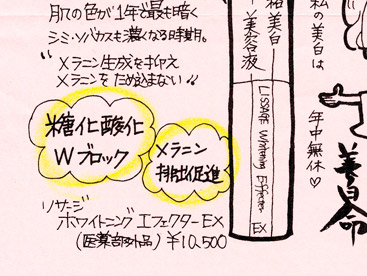 肌の色が1年で最も暗く
シミ・ソバカスも濃くなる時期。
“メラニン生成を抑え
メラニンをため込まない”
糖化酸化
Wブロック
メラニン
排出促進
リサージ
ホワイトニング エフェクターEX
(医薬部外品) ¥10,500
美白
美容液
LISSAGE Whitening Effector EX
私の美白は
年中無休♡
美白命